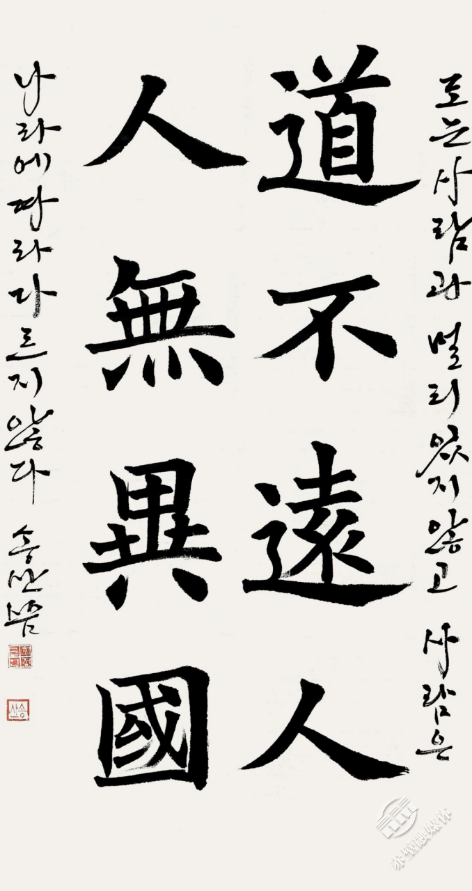 도는 사람과 멀리 있지 않고 사람은
道不遠人
人無異國
나라에 따라 다르지 않다 씀
融媒体